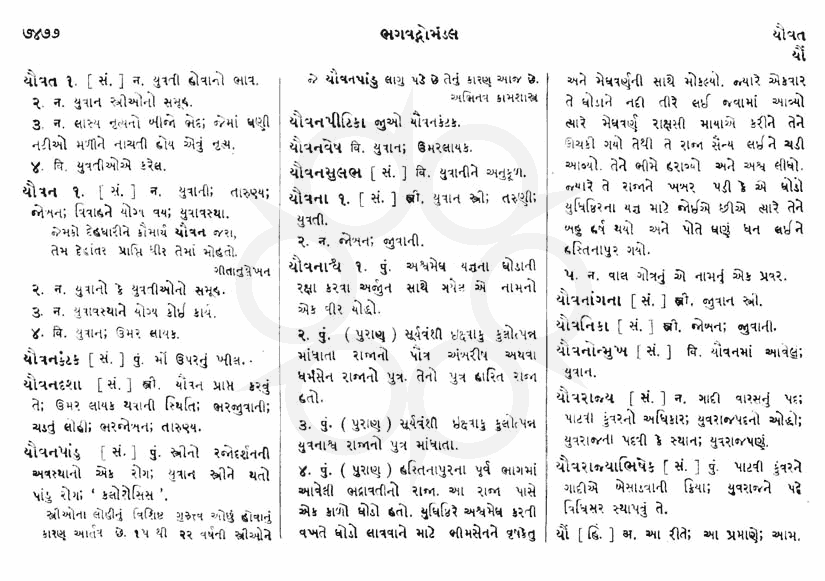 ૭૪૭૭
ભગવદ્ગોમંડલ
યૌવત
યૌં
યૌવત ૧. [ સં. ] ન. યુવતી હોવાનો ભાવ.
૨. ન. યુવાન સ્ત્રીઓનો સમૂહ.
૩. ન. લાસ્ય નૃત્યનો બીજો ભેદ; જેમાં ઘણી
નટીઓ મળીને નાચતી હોય એવું નૃત્ય.
૪. વિ. યુવતીઓએ કરેલ.
યૌવન ૧. [ સં. ] ન. યુવાની; તારુણ્ય;
જોબન; વિવાહને યોગ્ય વય; યુવાવસ્થા.
જેમકો દેહધારીને કૌમાર્ય યૌવન જરા,
તેમ દેહાંતર પ્રાપ્તિ ધીર તેમાં મોહતો.
ગીતાનુવેખન
૨. ન. યુવાનો કે યુવતીઓનો સમૂહ.
૩. ન. યુવાવસ્થાને યોગ્ય કોઈ કાર્ય.
૪. વિ. યુવાન; ઉમર લાયક.
યૌવનકંટક [ સં. ] પું. મોં ઉપરનું ખીલ.
યૌવનદશા [ સં. ] સ્ત્રી. યૌવન પ્રાપ્ત કરવું
તે; ઉમર લાયક થવાની સ્થિતિ; ભરજુવાની;
ચડતું લોહી; ભરજોબન; તારુણ્ય.
યૌવનપાંડુ [ સં. ] પું. સ્ત્રીનો રજોદર્શનની
અવસ્થાનો એક રોગ; યુવાન સ્ત્રીને થતો
પાંડુ રોગ; ‘ ક્લોરોસિસ ’.
સ્ત્રીઓના લોહીનું વિશિષ્ટ ગુરુત્વ ઓછું હોવાનું
કારણ આર્તવ છે. ૧૫ થી ૨૨ વર્ષની સ્ત્રીઓને
જે યૌવનપાંડુ લાગુ પડે છે તેનું કારણ આજ છે.
અભિનવ કામશાસ્ત્ર
યૌવનપીટિકા જુઓ યૌવનકંટક.
યૌવનવેષ વિ. યુવાન; ઉમરલાયક.
યૌવનસુલભ [ સં. ] વિ. યુવાનીને અનુકૂળ.
યૌવના ૧. [ સં. ] સ્ત્રી. યુવાન સ્ત્રી; તરુણી;
યુવતી.
૨. ન. જોબન; જુવાની.
યૌવનાશ્વ ૧. પું. અશ્વમેધ યજ્ઞના ઘોડાની
રક્ષા કરવા અર્જુન સાથે ગયેલ એ નામનો
એક વીર યોદ્ધો.
૨. પું. ( પુરાણ ) સૂર્યવંશી ઇક્ષ્વાકુ કુલોત્પન્ન
માંધાતા રાજાનો પૌત્ર અંબરીષ અથવા
ધર્મસેન રાજાનો પુત્ર. તેનો પુત્ર હારિત રાજા
હતો.
૩. પું. ( પુરાણ ) સૂર્યવંશી ઇક્ષ્વાકુ કુલોત્પન્ન
યુવનાશ્વ રાજાનો પુત્ર માંધાતા.
૪. પું. ( પુરાણ ) હસ્તિનાપુરના પૂર્વ ભાગમાં
આવેલી ભદ્રાવતીનો રાજા. આ રાજા પાસે
એક કાળો ઘોડો હતો. યુધિષ્ઠિરે અશ્વમેધ કરતી
વખતે ઘોડો લાવવાને માટે ભીમસેનને વૃષકેતુ
અને મેઘવર્ણની સાથે મોકલ્યો. જ્યારે એકવાર
તે ઘોડાને નદી તીરે લઈ જવામાં આવ્યો
ત્યારે મેઘવર્ણ રાક્ષસી માયાએ કરીને તેને
ઊચકી ગયો તેથી તે રાજા સૈન્ય લઈને ચડી
આવ્યો. તેને ભીમે હરાવ્યો અને અશ્વ લીધો.
જ્યારે તે રાજાને ખબર પડી કે એ ઘોડો
યુધિષ્ઠિરના યજ્ઞ માટે જોઈએ છીએ ત્યારે તેને
બહુ હર્ષ થયો અને પોતે ઘણું ધન લઈને
હસ્તિનાપુર ગયો.
૫. ન. વાલ ગોત્રનું એ નામનું એક પ્રવર.
યૌવનાંગના [ સં. ] સ્ત્રી. જુવાન સ્ત્રી.
યૌવનિકા [ સં. ] સ્ત્રી. જોબન; જુવાની.
યૌવનોન્મુખ [ સં. ] વિ. યૌવનમાં આવેલું;
યુવાન.
યૌવરાજ્ય [ સં. ] ન. ગાદી વારસનું પદ;
પાટવી કુંવરનો અધિકાર; યુવરાજપદનો ઓદ્ધો;
યુવરાજના પદવી કે સ્થાન; યુવરાજપણું.
યૌવરાજ્યાભિષેક [ સં. ] પું. પાટવી કુંવરને
ગાદીએ બેસાડવાની ક્રિયા; યુવરાજને પદે
વિધિસર સ્થાપવું તે.
યૌં [ હિં. ] અ. આ રીતે; આ પ્રમાણે; આમ.